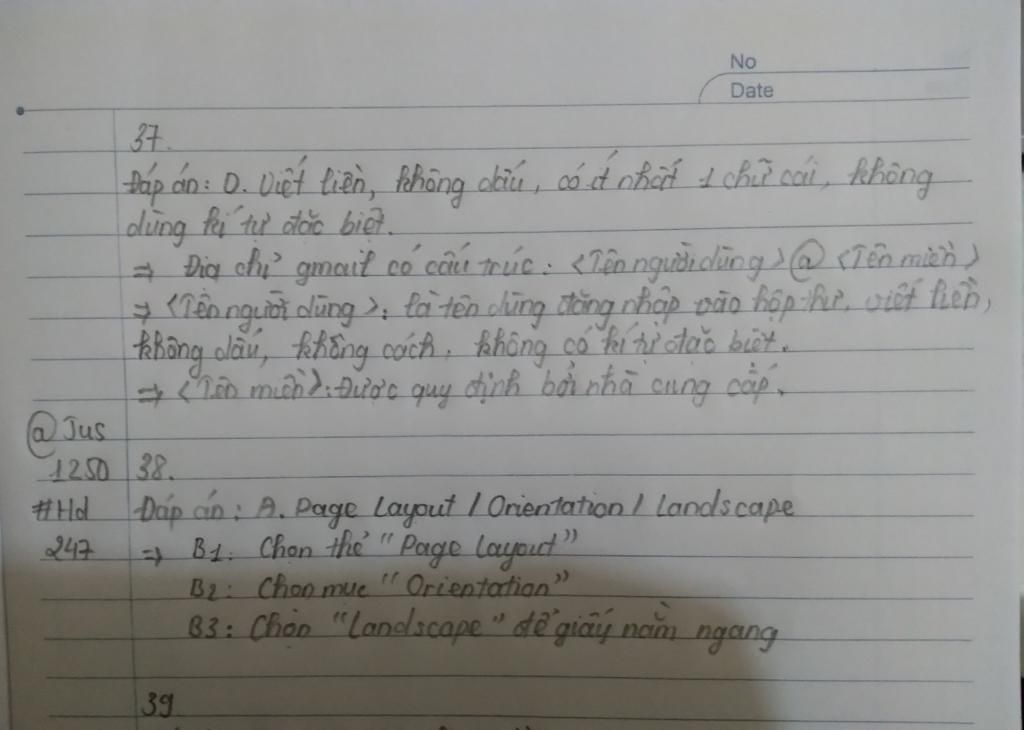 No
Date
37.
Đáp án: D. Viết liền, không dấu, có ít nhất 1 chữ cái, không
dùng kí tự đặc biệt.
⇒ Địa chỉ gmail có cấu trúc: <Tên người dùng> @ <Tên miền>
⇒ <Tên người dùng>: là tên dùng đăng nhập vào hộp thư, viết liền,
không dấu, không cách, không có kí tự đặc biệt.
⇒ <Tên miền>: Được quy định bởi nhà cung cấp.
@Jus
1250 38.
#Hd Đáp án: A. Page Layout / Orientation / Landscape
247 ⇒ B1: Chọn thẻ "Page Layout"
B2: Chọn mục "Orientation"
B3: Chọn "Landscape" để giấy nằm ngang
39